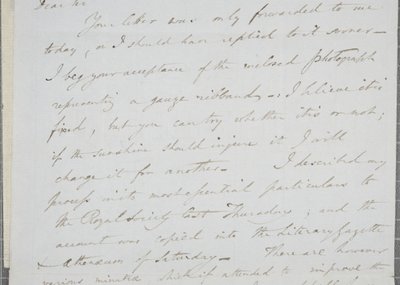 Dear Sir
Your letter was only forwarded to me
today, or I should have replied to it sooner —
I beg your acceptance of the inclosed photograph
representing a gauge ribband — I believe it is
fixed, but you can try whether it is or not;
if the sunshine should injure it I will
change it for another — I described my
process in its most essential particulars to
the Royal Society last Thursday, and the
account was copied into the Literary Gazette
& Athenaeum of Saturday — There are however
various minutiæ which if attended to improve the